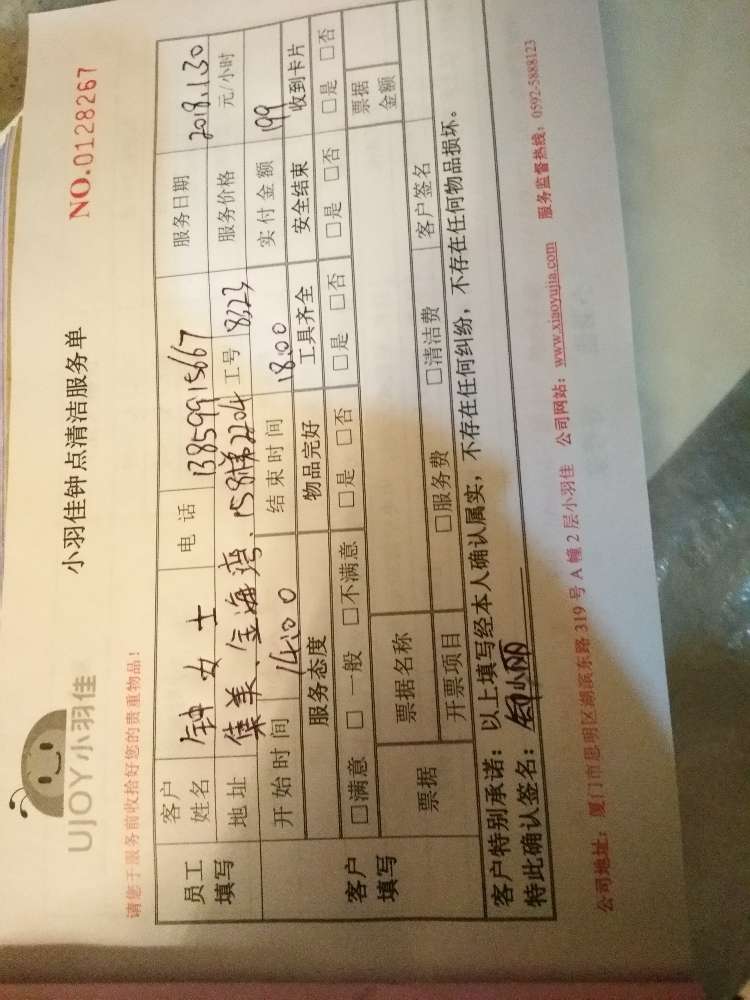 UJOY小羽佳
小羽佳钟点清洁服务单
NO.0128267
请您于服务前收拾好您的贵重物品！
员工填写 客户姓名 钟女士 电话 13859915667 服务日期 2018.1.30
地址 集美、金海湾、158梯2204 工号 8323 服务价格 元/小时
开始时间 14:00 结束时间 18:00 实付金额 199
客户填写 服务态度 物品完好 工具齐全 安全结束 收到卡片
□满意 □一般 □不满意 □是 □否 □是 □否 □是 □否 □是 □否
票据 票据名称 票据金额
开票项目 □服务费 □清洁费 客户签名
客户特别承诺：以上填写经本人确认属实，不存在任何纠纷，不存在任何物品损坏。
特此确认签名：
公司地址：厦门市思明区湖滨东路319号A幢2层小羽佳 公司网站：www.xiaoyujia.com 服务监督热线：0592-5888123